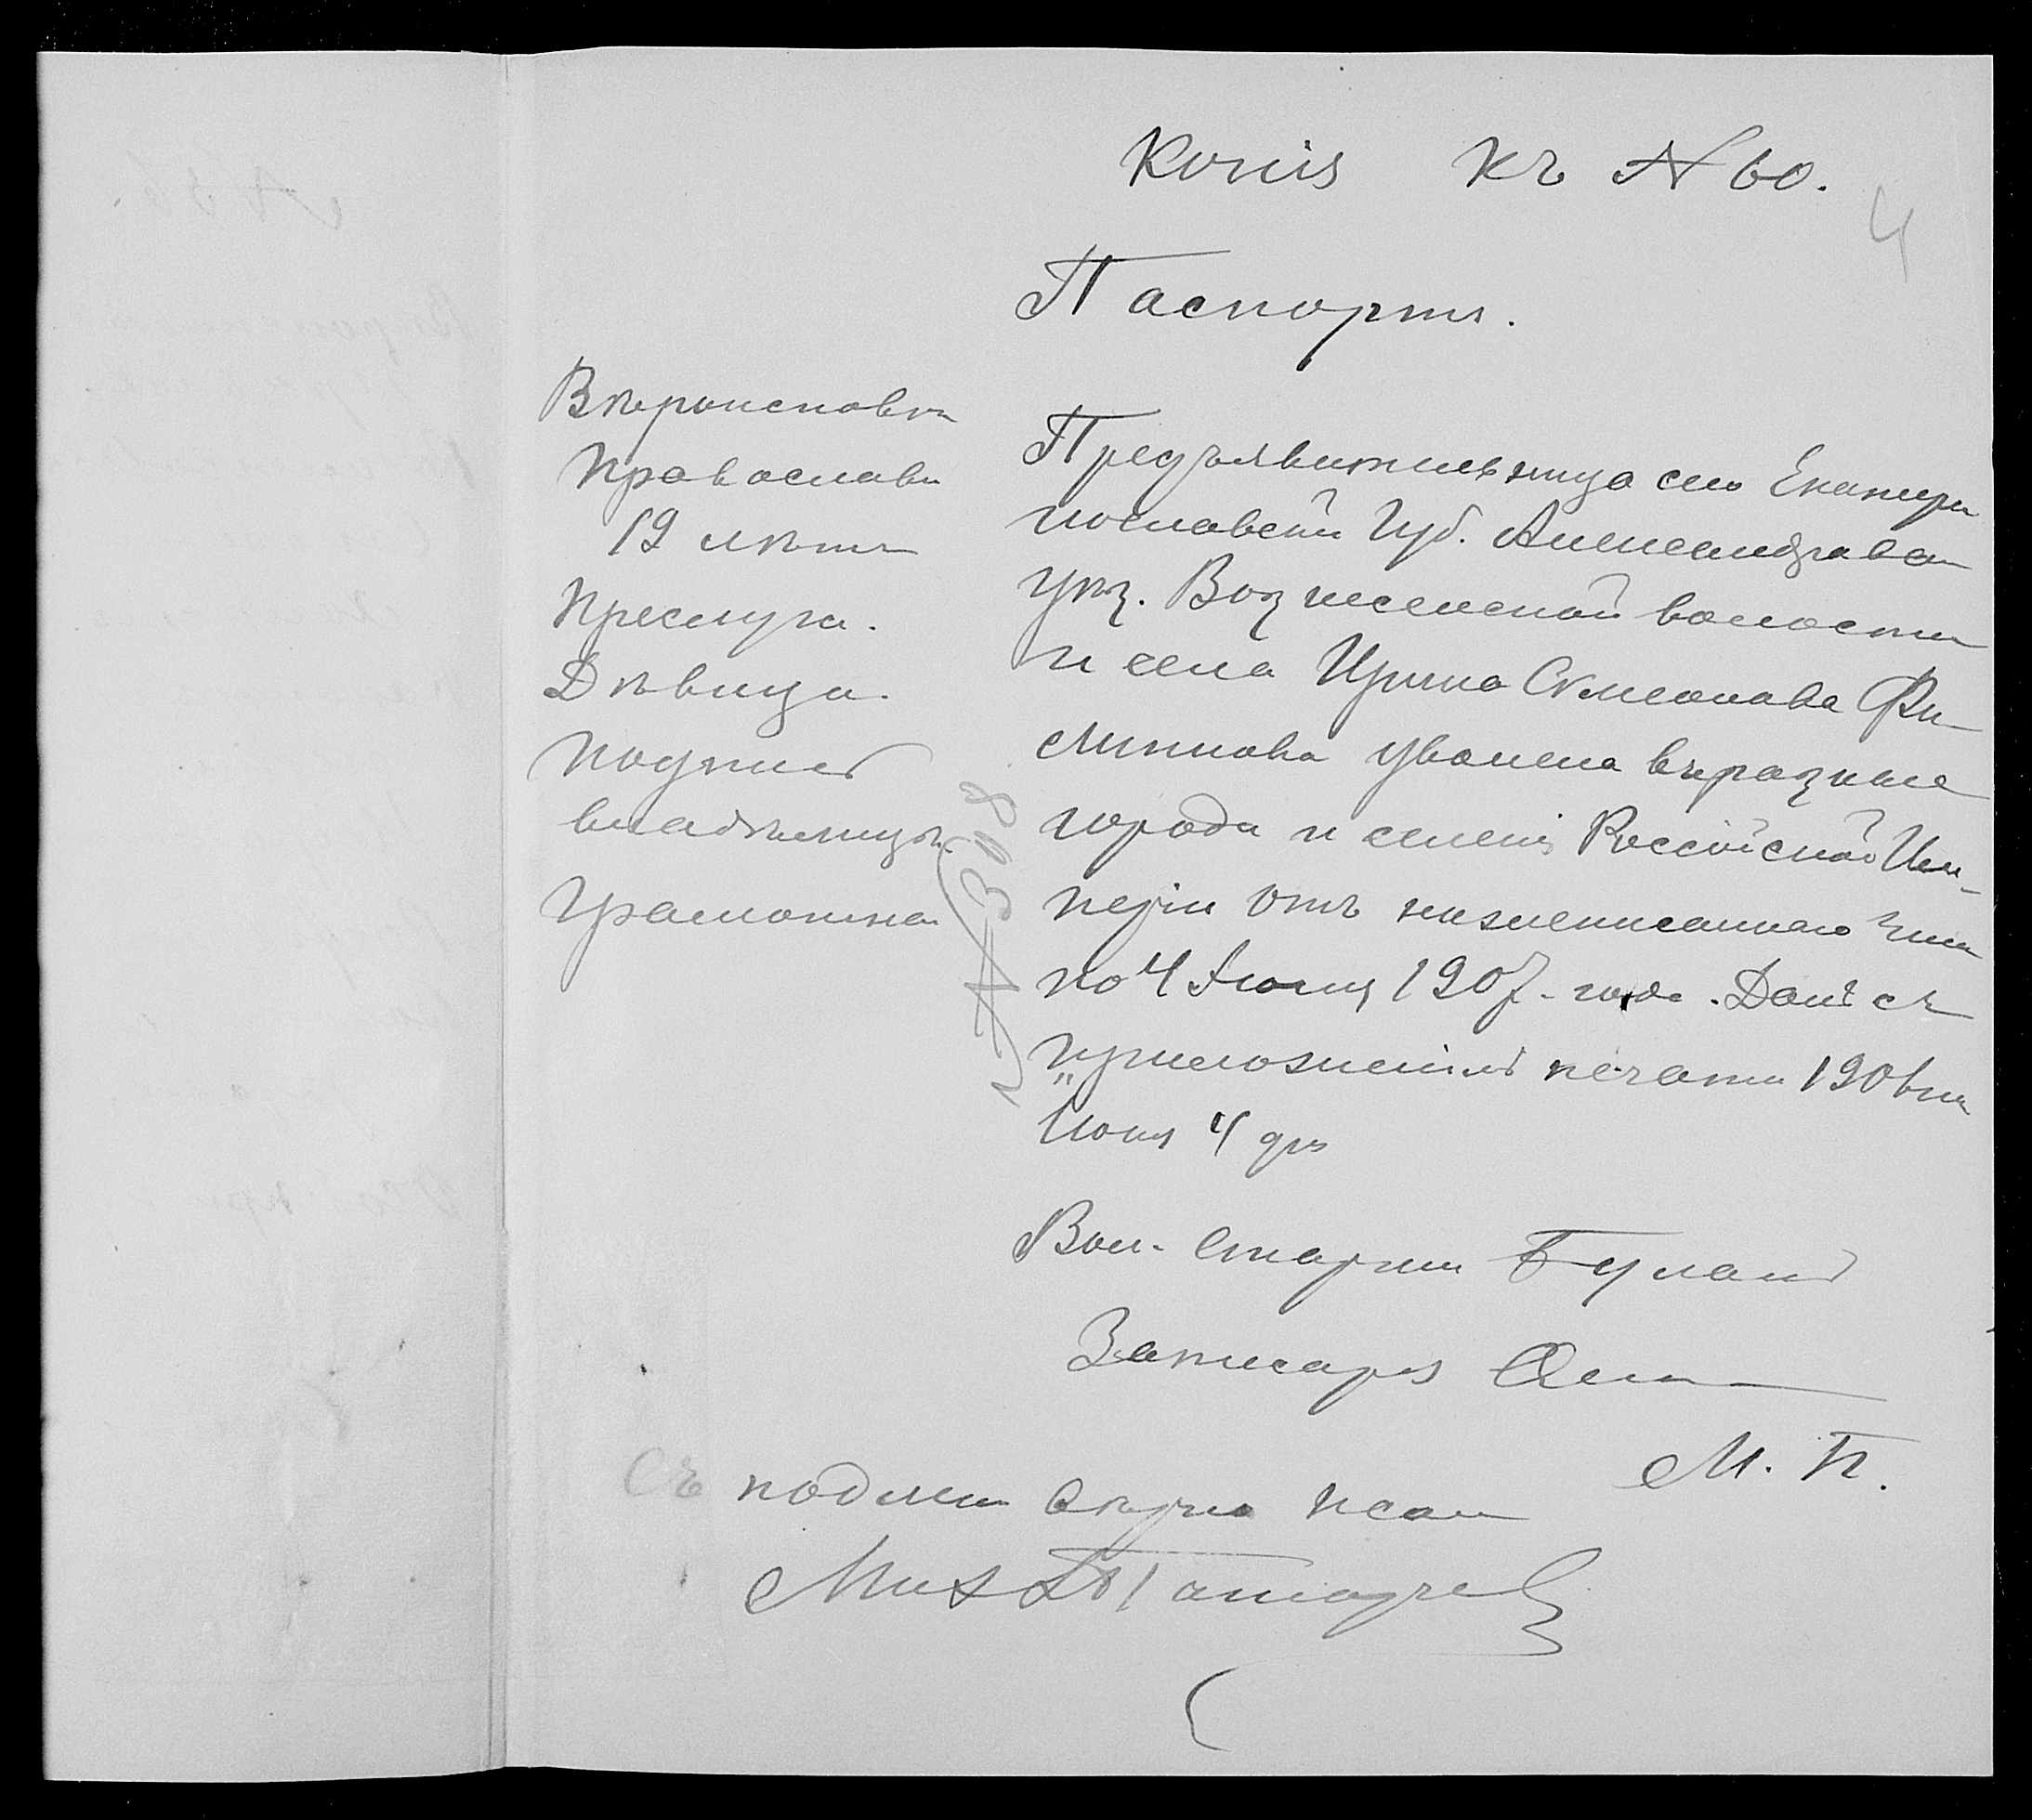 Копія къ № 60.
4
Паспортъ.
Вѣроисповѣ
Православн
19 лѣтъ
Преслуга.
Дѣвица.
Подпись
владѣлицы
Грамотная
№ 308
Предъявительница сего Екатери
нославской Губ. Александровск
уѣз. Вознесенской волости
и села Ирина Симеонова Фи
липпова уволена въ разные
города и селенія Россійской Им-
періи отъ нижеписаннаго числа
по 4 Іюня 1907 года. Данъ съ
приложеніемъ печати 1906 г
Іюня 4 дня
Вол. Старшин
За писаря
М. П.
Съ подлин вѣрно